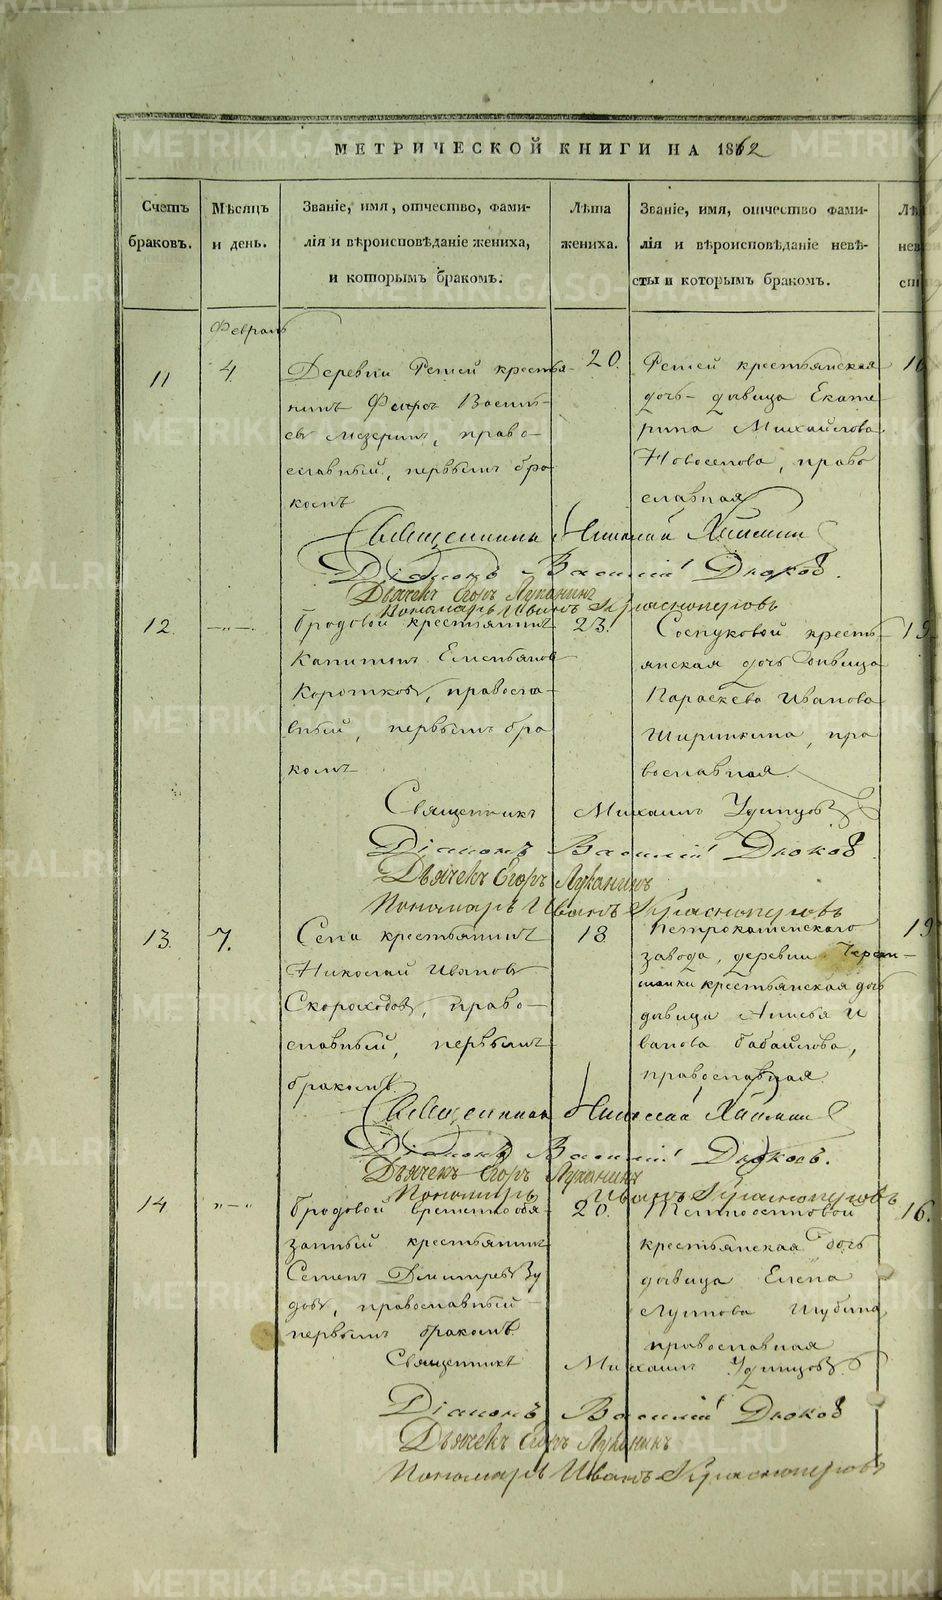 МЕТРИЧЕСКОЙ КНИГИ НА 1862
Счетъ браковъ.
Мѣсяцъ и день.
Званіе, имя, отчество, фами-
лія и вѣроисповѣданіе жениха,
и которымъ бракомъ.
Лѣта
жениха.
Званіе, имя, отчество фами-
лія и вѣроисповѣданіе невѣ-
сты и которымъ бракомъ.
Февраль
11
4.
Деревни Ретей крестья-
нинъ Василь-
евъ Мезеринъ, право-
славный, первымъ бра
комъ
20.
Ретей крестьянская
дочь-дѣвица Екате
рина Михайлова
Новоселова, право
славная
Священникъ Николай
Діаконъ Василій Дюковъ.
Дьячекъ Егоръ Луканинъ
Пономарь Иванъ Красноперовъ
12.
—"—.
Бродовой крестьянинъ
Капитонъ Емельяновъ
Коротковъ, правосла-
вный, первымъ бра
комъ
23.
Соснуковой кресть-
янская дочь дѣвица
Параскева Иванова
Ширинкина, пра
вославная.
19.
Священникъ Михаилъ Удинцовъ
Діаконъ Василій Дюковъ
Дьячекъ Егоръ Луканинъ
Пономарь Иванъ Красноперовъ
13.
7.
Села крестьянинъ
Николай Ивановъ
Скороходовъ, право-
славный, первымъ
бракомъ.
18
Петрокаменскаго
завода, деревни
крестьянская дочь
дѣвица Анисья И
ванова Бабайлова,
православная.
19
Священникъ Николай
Діаконъ Василій Дюковъ.
Дьячекъ Егоръ Луканинъ
Пономарь Иванъ Красноперовъ
14
"—"
Бродовой временнообя-
занный крестьянинъ
Семенъ Дмитревъ Зу
довъ, православный
первымъ бракомъ
20.
крестьянская дочь
дѣвица Елена
Шубина
православная
16.
Священникъ Михаилъ Удинцовъ
Діаконъ Василій Дюковъ
Дьячекъ Егоръ Луканинъ
Пономарь Иванъ Красноперовъ
METRIKI.GASO-URAL.RU